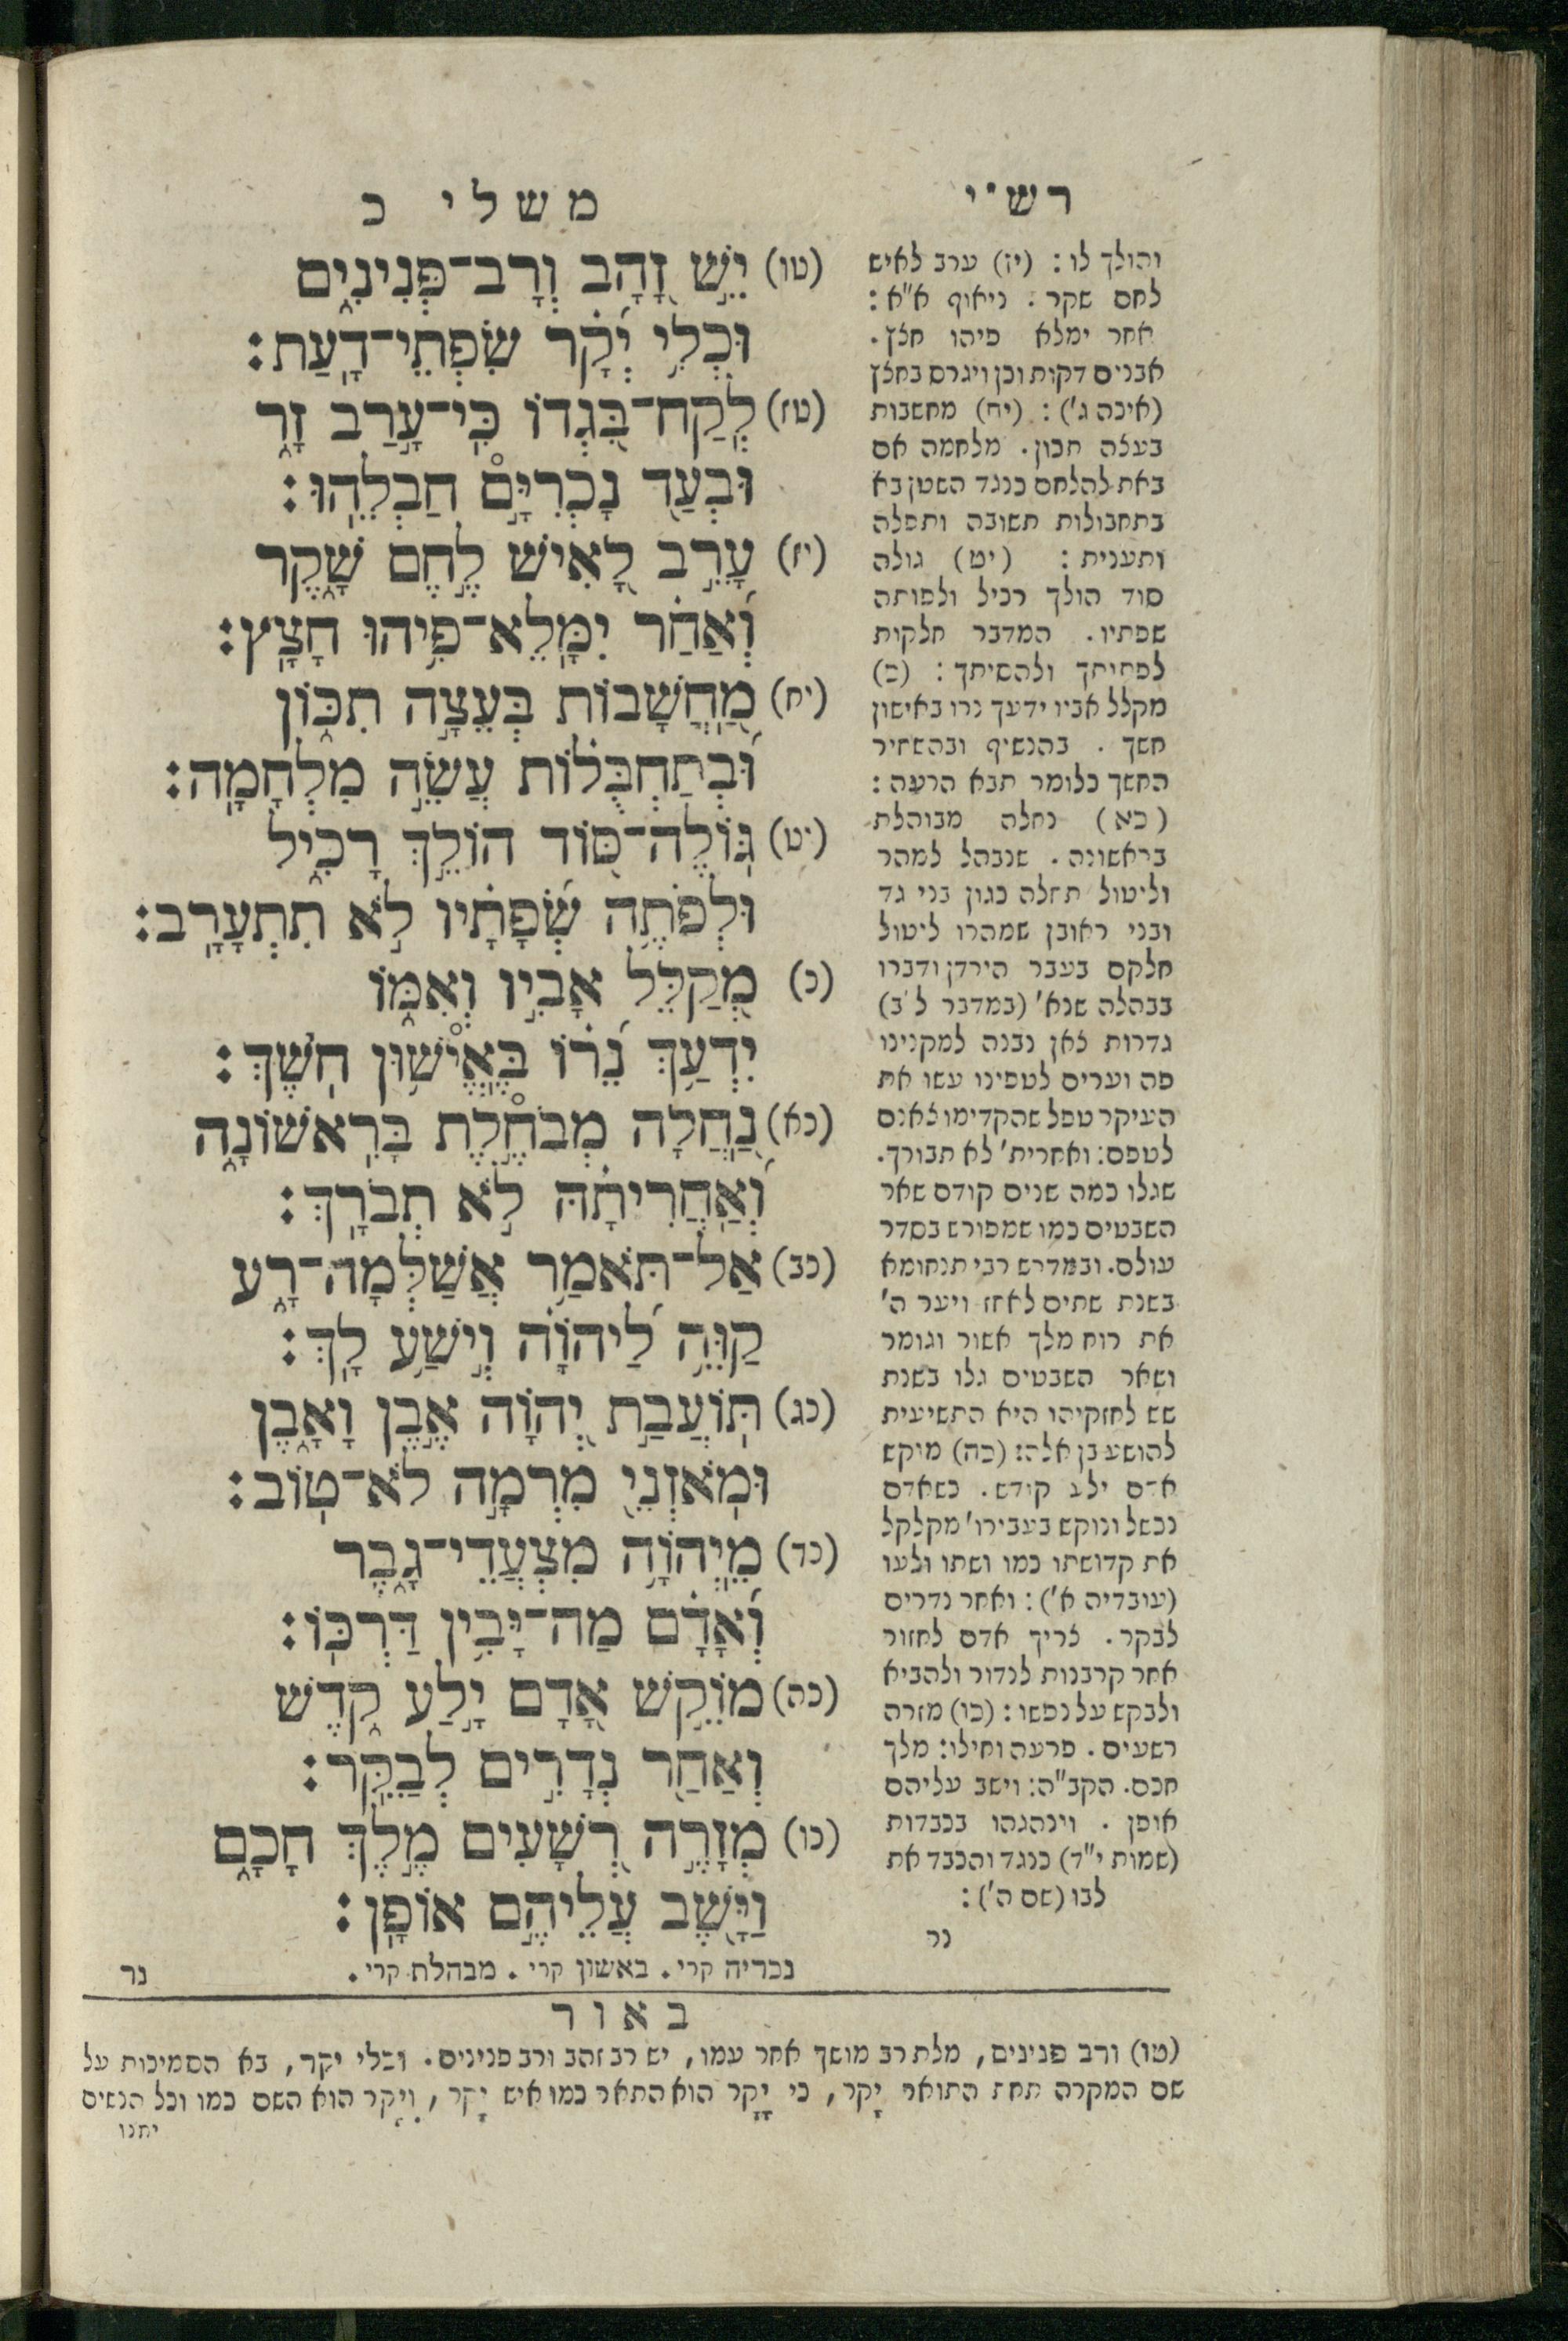 רש"י
והולך לו: (יז) ערב לאיש
לחם שקר. ניאוף א"א:
אחר ימלא פיהו חצץ.
אבנים דקות וכן ויגרס בחצץ
(איכה ג'): (יח) מחשבות
בעצה תכון. מלחמה אם
באת להלחם כנגד השטן בא
בתחבולות תשובה ותפלה
ותענית: (יט) גולה
סוד הולך רכיל ולפותה
שפתיו. המדבר חלקות
לפתותך ולהסיתך: (כ)
מקלל אביו ידעך נרו באישון
חשך. בהנשיף ובהשחיר
החשך כלומר תבא הרעה:
(כא) נחלה מבוהלת
בראשונה. שנבהל למהר
וליטול תחלה כגון בני גד
ובני ראובן שמהרו ליטול
חלקם בעבר הירדן ודברו
בבהלה שנא' (במדבר ל"ב)
גדרות צאן נבנה למקנינו
פה וערים לטפינו עשו את
העיקר טפל שהקדימו צאנם
לטפם: ואחרית' לא תבורך.
שגלו כמה שנים קודם שאר
השבטים כמו שמפורש בסדר
עולם. ובמדרש רבי תנחומא
בשנת שתים לאחז ויער ה'
את רוח מלך אשור וגומר
ושאר השבטים גלו בשנת
שש לחזקיהו היא התשיעית
להושע בן אלה: (כה) מוקש
אדם ילע קודש. כשאדם
נכשל ונוקש בעבירו' מקלקל
את קדושתו כמו ושתו ולעו
(עובדיה א'): ואחר נדרים
לבקר. צריך אדם לחזור
אחר קרבנות לנדור ולהביא
ולבקש על נפשו: (כו) מזרה
רשעים. פרעה וחילו: מלך
חכם. הקב"ה: וישב עליהם
אופן. וינהגהו בכבדות
(שמות י"ד) כנגד והכבד את
לבו (שם ה'):
נר
משלי כ
(טו) יֵ֣שׁ זָ֭הָב וְרָב־פְּנִינִ֑ים
וּכְלִ֥י יְ֝קָ֗ר שִׂפְתֵי־דָֽעַת:
(טז) לְֽקַח־בִּ֭גְדוֹ כִּי־עָ֣רַב זָ֑ר
וּבְעַ֖ד נָכְרִיָּ֣ם חַבְלֵֽהוּ:
(יז) עָרֵ֣ב לָ֭אִישׁ לֶ֣חֶם שָׁ֑קֶר
וְ֝אַחַ֗ר יִמָּֽלֵא־פִ֥יהוּ חָצָֽץ:
(יח) מַֽ֭חֲשָׁבוֹת בְּעֵצָ֣ה תִכּ֑וֹן
וּ֝בְתַחְבֻּל֗וֹת עֲשֵׂ֣ה מִלְחָמָֽה:
(יט) גּֽוֹלֶה־סּ֭וֹד הוֹלֵ֣ךְ רָכִ֑יל
וּלְפֹתֶ֥ה שְׂ֝פָתָ֗יו לֹ֣א תִתְעָרָֽב:
(כ) מְ֭קַלֵּל אָבִ֣יו וְאִמּ֑וֹ
יִדְעַ֥ךְ נֵ֝ר֗וֹ בֶּאֱיש֥וּן חֹֽשֶׁךְ:
(כא) נַ֭חֲלָה מְבֹחֶ֣לֶת בָּרִֽאשׁוֹנָ֑ה
וְ֝אַחֲרִיתָ֗הּ לֹ֣א תְבֹרָֽךְ:
(כב) אַל־תֹּאמַ֥ר אֲשַׁלְּמָה־רָ֑ע
קַוֵּ֥ה לַ֝יהוָֹ֗ה וְיֹ֣שַֽׁע לָֽךְ:
(כג) תּוֹעֲבַ֣ת יְ֭הוָֹה אֶ֣בֶן וָאָ֑בֶן
וּמֹאזְנֵ֖י מִרְמָ֣ה לֹא־טֽוֹב:
(כד) מֵֽיְהוָֹ֥ה מִצְעֲדֵי־גָ֑בֶר
וְ֝אָדָ֗ם מַה־יָּבִ֥ין דַּרְכּֽוֹ:
(כה) מוֹקֵ֣שׁ אָ֭דָם יָ֣לַע קֹ֑דֶשׁ
וְאַחַ֖ר נְדָרִ֣ים לְבַקֵּֽר:
(כו) מְזָרֶ֣ה רְ֭שָׁעִים מֶ֣לֶךְ חָכָ֑ם
וַיָּ֖שֶׁב עֲלֵיהֶ֣ם אוֹפָֽן:
נכריה קרי. באשון קרי. מבהלת קרי.
נר
באור
(טו) ורב פנינים, מלת רב מושך אחר עמו, יש רב זהב ורב פנינים. וכלי יקר, בא הסמיכות על
שם המקרה תחת התואר יָקר, כי יָקָר הוא התאר כמו איש יָקר, וִיקָר הוא השם כמו וכל הנשים
יתנו